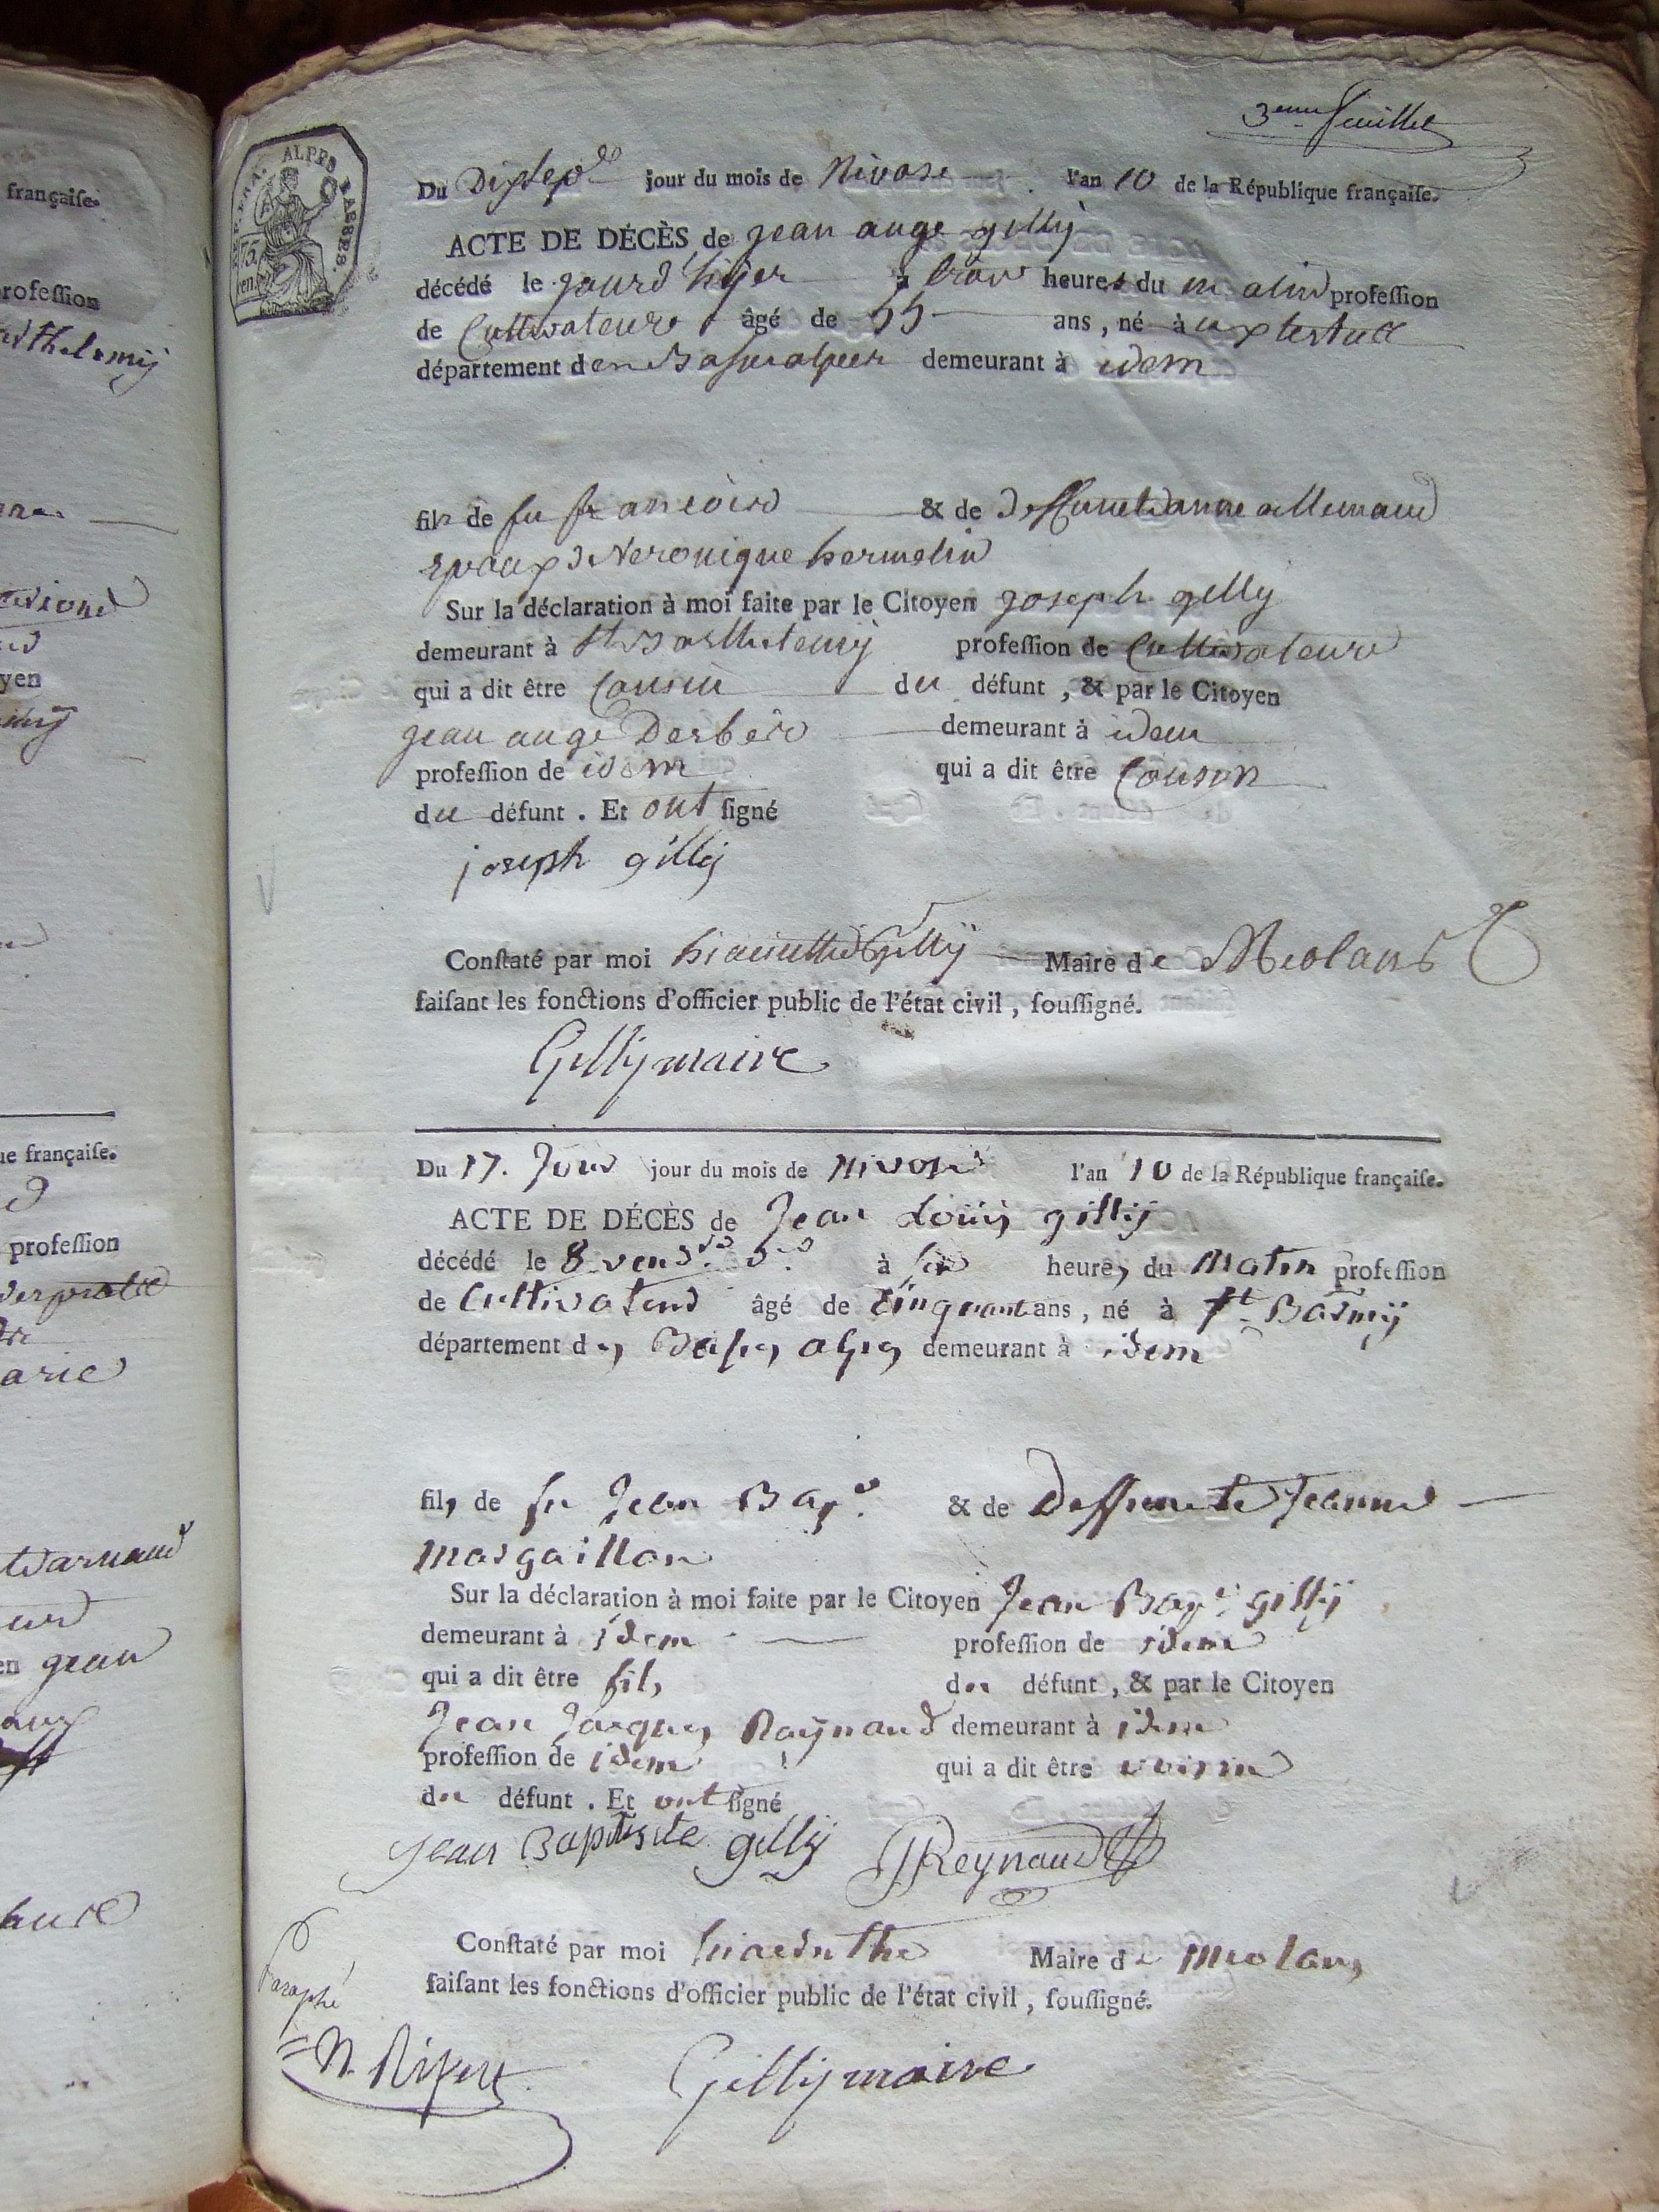 3eme feuillet
ALPES BASSES.
75 cen
Du Dixsept jour du mois de Nivose l'an 10 de la République françaiſe.
ACTE DE DÉCÈS de jean ange gilly
décédé le jourd hyer à trois heures du matin profeſſion
de Cultivateur âgé de 55 ans, né à
département des Basses alpes demeurant à idem
fils de fu francois & de deffunte anne allemand
epoux Veronique hermelin
Sur la déclaration à moi faite par le Citoyen joseph gilly
demeurant à St Barthelemy profeſſion de Cultivateur
qui a dit être Cousin du défunt, & par le Citoyen
jean ange Derbés demeurant à idem
profeſſion de idem qui a dit être Cousin
du défunt. Et ont ſigné
joseph gilly
Conſtaté par moi hiacinthe Gilly Maire de Meolans
faiſant les fonctions d'officier public de l'état civil, ſouſſigné.
Gilly maire
Du 17. Jour jour du mois de Nivose l'an 10 de la République françaiſe.
ACTE DE DÉCÈS de Jean Loüis gilly
décédé le 8 à heures du Matin profeſſion
de Cultivateur âgé de Cinquant ans, né à St. Barmy
département des Basses alpes demeurant à idem
fils de fu Jean Bapt. & de Deffunte Jeanne
Margaillan
Sur la déclaration à moi faite par le Citoyen Jean Bapt gilly
demeurant à idem profeſſion de idem
qui a dit être fils du défunt, & par le Citoyen
Jean Jacques Raynaud demeurant à idem
profeſſion de idem qui a dit être voisin
du défunt. Et ont ſigné
Jean Baptiste gilly JJReynaud
Conſtaté par moi hiacinthe Maire de Meolans
faiſant les fonctions d'officier public de l'état civil, ſouſſigné.
Paraphé
N. Ripert
Gilly maire
françaiſe.
profeſſion
ue françaiſe.
profeſſion
arie
yen
en jean